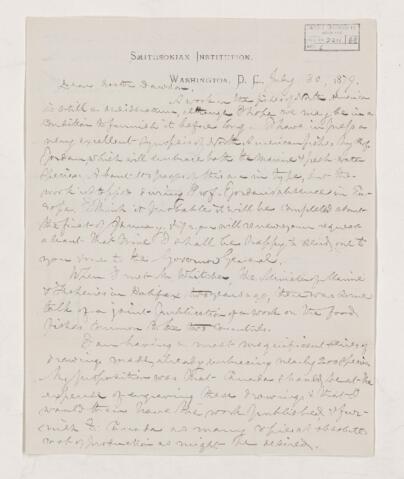 SMITHSONIAN INSTITUTION,
WASHINGTON, D. C. July 30, 1879.
Dear
A work on the fishes of North America
is still a desideratum, although I hope we may be in a
condition to furnish it before long. I have in press a
very excellent synopsis of North American fishes by Prof
Jordan, which will embrace both the marine & fresh water
species. About 100 pages of this are in type, but the
work is stopped during Prof. Jordan's absence in Eu-
rope. I think it probable it will be completed about
the first of January, & if you will renew your request
about that time I shall be happy to send one to
you & one to the Governor General.
When I met Mr Whitcher, the Minister of Marine
& Fisheries in Halifax two years ago, there was some
talk of a joint publication of a work on the food
fishes common to the two countries.
I am having a most magnificent series of
drawings made, already embracing nearly 200 species.
My proposition was that Canada should bear the
expense of engraving these drawings & that I
would then have the work published & fur-
nish to Canada as many copies at absolute
cost of production as might be desired.